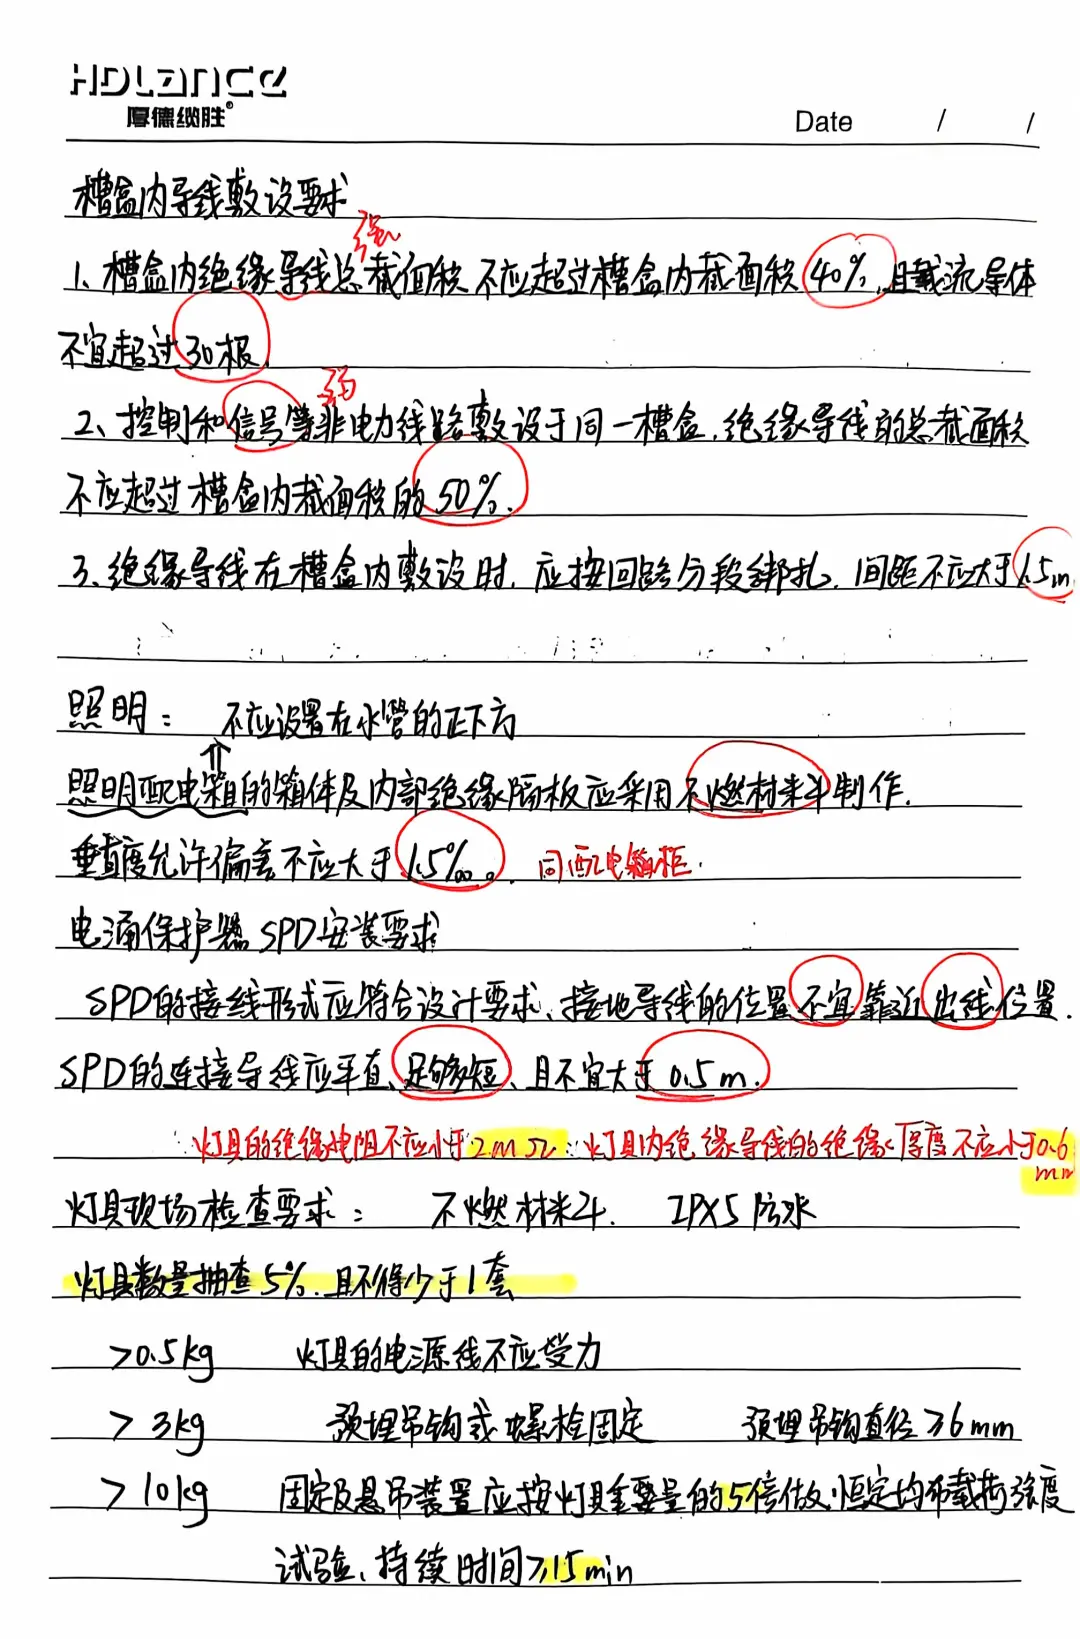 HDLANCE
厚德缆胜®
Date / /
槽盒内导线敷设要求
强
1、槽盒内绝缘导线总截面积不应超过槽盒内截面积40%,且载流导体
不宜超过30根.
弱
2、控制和信号等非电力线路敷设于同一槽盒,绝缘导线的总截面积
不应超过槽盒内截面积的50%.
3、绝缘导线在槽盒内敷设时,应按回路分段绑扎,间距不应大于1.5m
照明: 不应设置在水管的正下方
照明配电箱的箱体及内部绝缘隔板应采用不燃材料制作.
垂直度允许偏差不应大于1.5‰。 同配电箱柜.
电涌保护器SPD安装要求
SPD的接线形式应符合设计要求、接地导线的位置不宜靠近出线位置.
SPD的连接导线应平直、足够短、且不宜大于0.5m.
灯具的绝缘电阻不应小于2mΩ: 灯具内绝缘导线的绝缘厚度不应小于0.6
mm
灯具现场检查要求: 不燃材料. IPX5防水
灯具数量抽查5%.且不得少于1套
>0.5kg 灯具的电源线不应受力
>3kg 预埋吊钩或螺栓固定 预埋吊钩直径≥6mm
>10kg 固定及悬吊装置应按灯具重量的5倍做恒定均布载荷强度
试验、持续时间≥15min